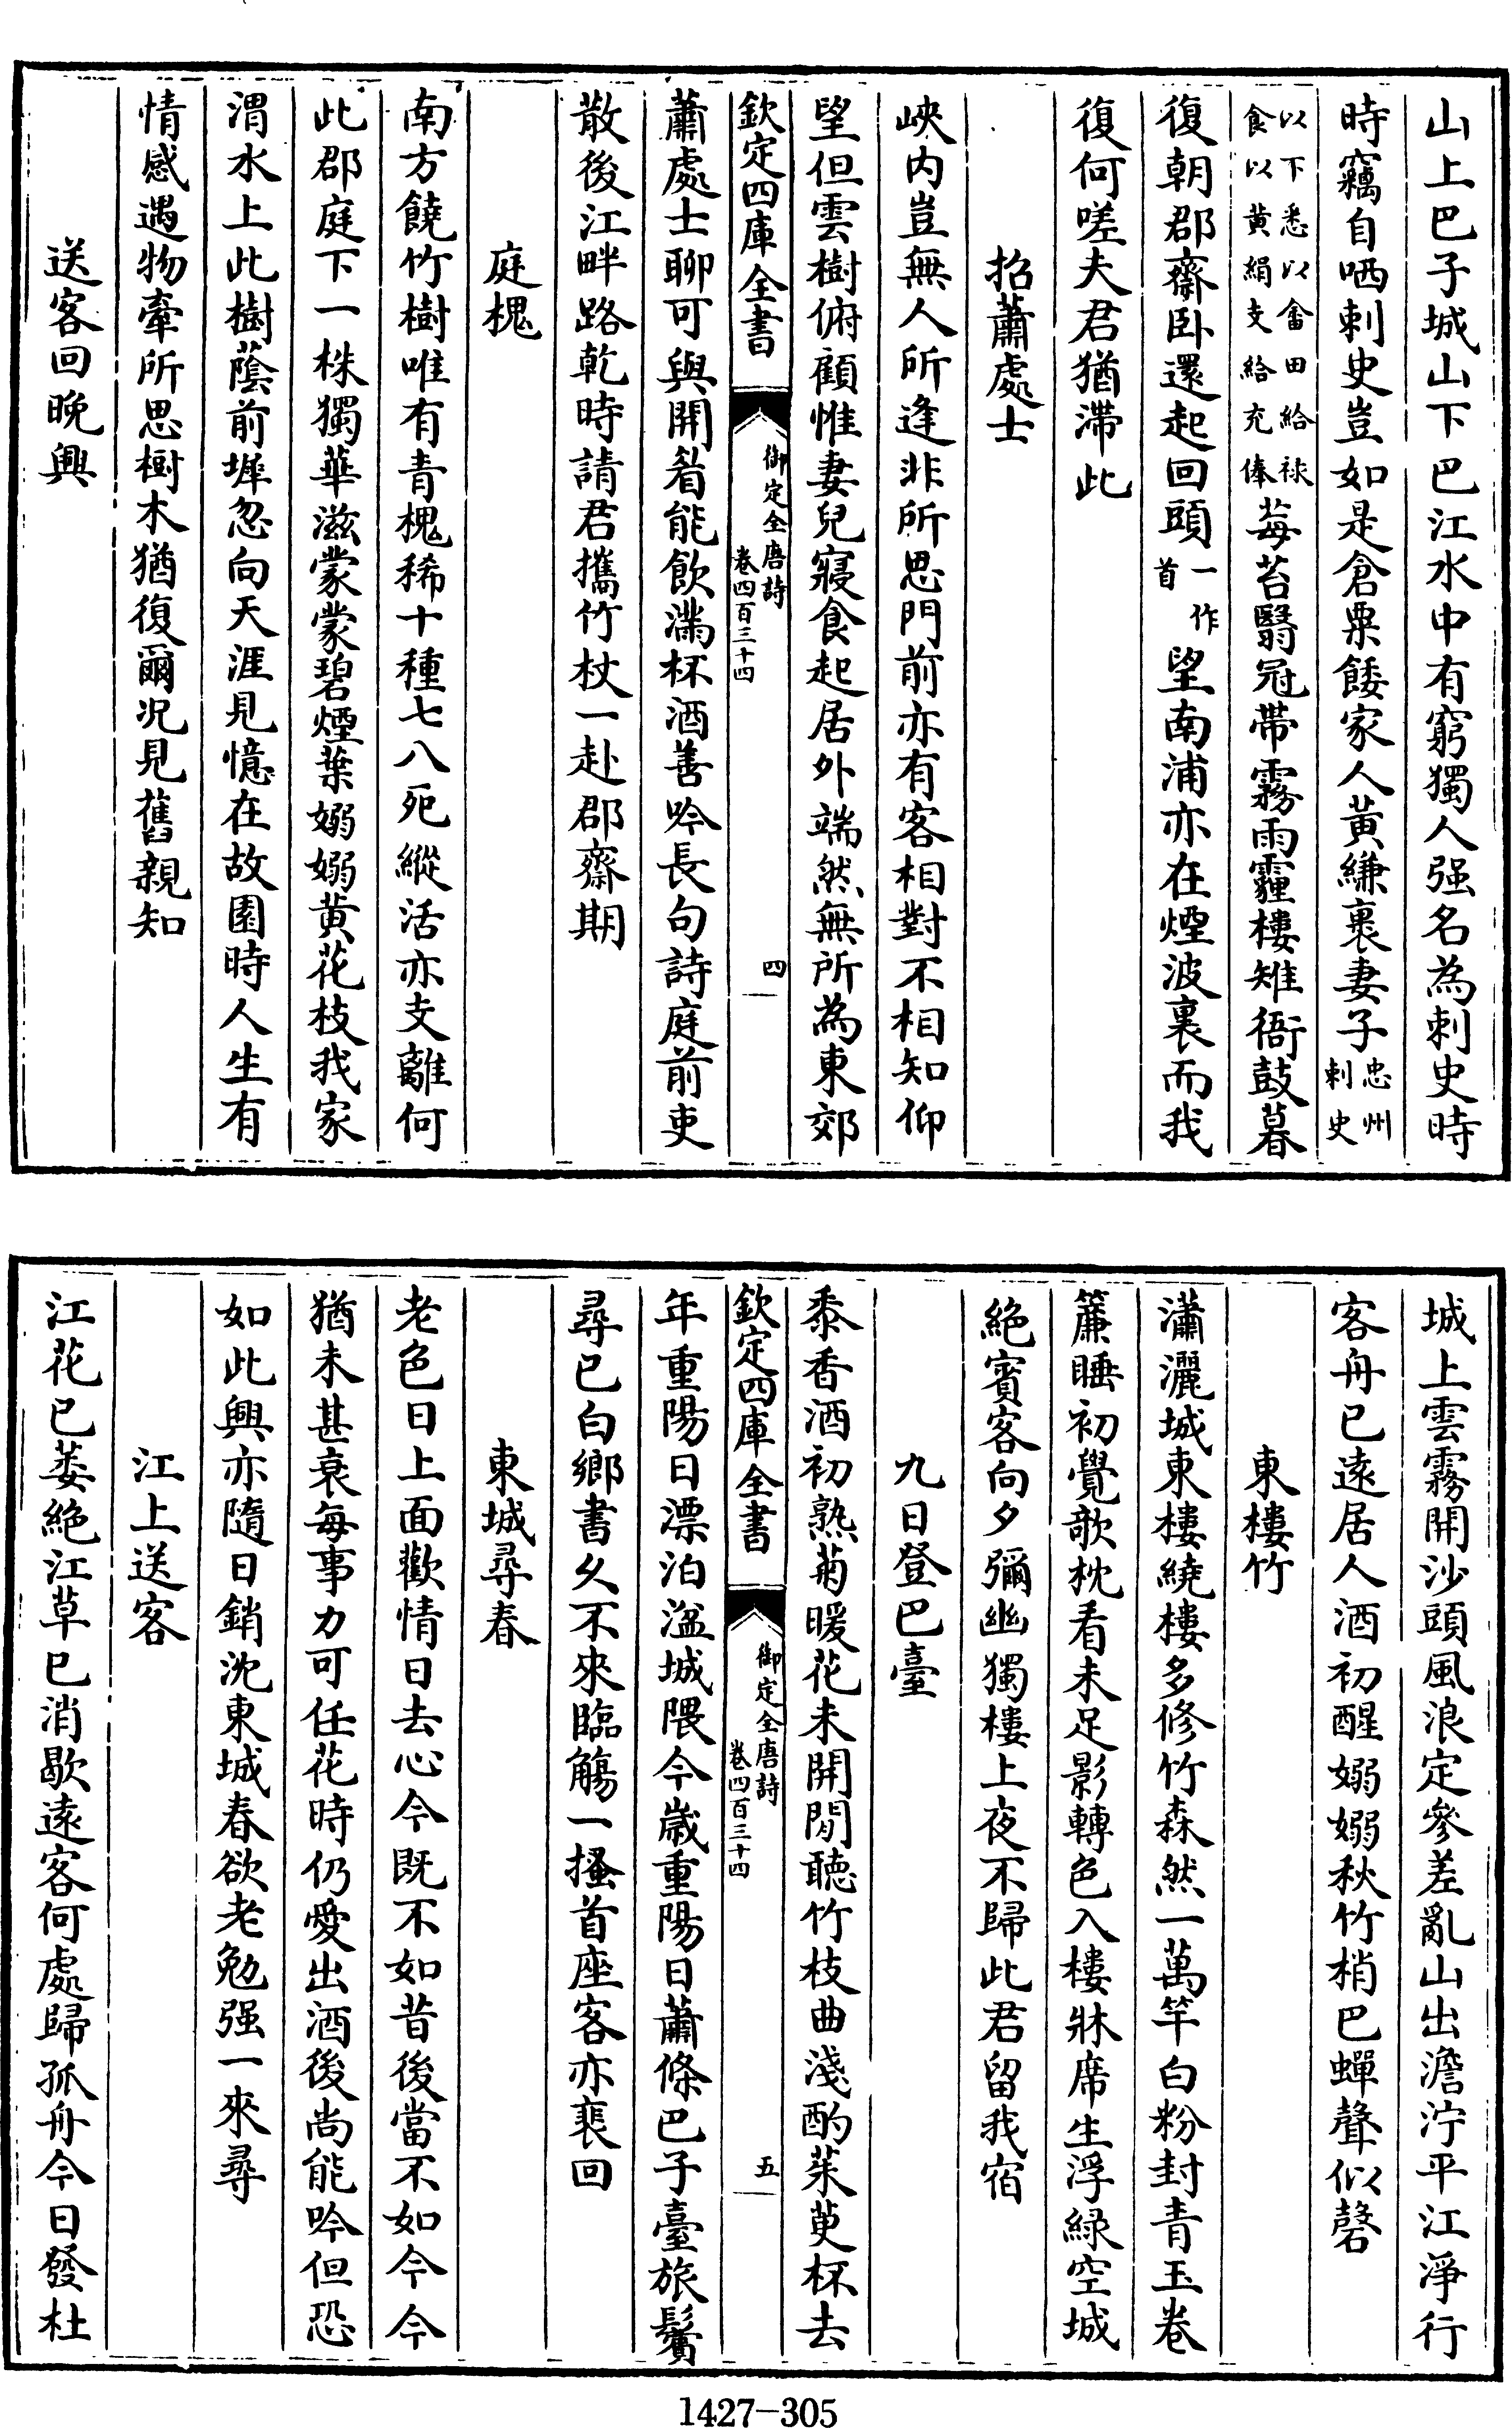 山上巴子城山下巴江水中有窮獨人强名為刺史時
時竊自哂刺史豈如是倉粟餧家人黄縑裹妻子忠州刺史
以下悉以畬田給祿食以黄絹支給充俸莓苔翳冠帶霧雨霾樓雉衙鼓暮
復朝郡齋卧還起回頭一作首望南浦亦在煙波裏而我
復何嗟夫君猶滯此
招蕭處士
峽内豈無人所逢非所思門前亦有客相對不相知仰
望但雲樹俯顧惟妻兒寢食起居外端然無所為東郊
欽定四庫全書 御定全唐詩 卷四百三十四 四
蕭處士聊可與開眉能飲滿杯酒善吟長句詩庭前吏
散後江畔路乾時請君攜竹杖一赴郡齋期
庭槐
南方饒竹樹唯有青槐稀十種七八死縱活亦支離何
此郡庭下一株獨華滋蒙蒙碧煙葉嫋嫋黄花枝我家
渭水上此樹蔭前墀忽向天涯見憶在故園時人生有
情感遇物牽所思樹木猶復爾况見舊親知
送客回晚興
城上雲霧開沙頭風浪定參差亂山出澹泞平江淨行
客舟已遠居人酒初醒嫋嫋秋竹梢巴蟬聲似磬
東樓竹
瀟灑城東樓繞樓多修竹森然一萬竿白粉封青玉卷
簾睡初覺欹枕看未足影轉色入樓牀席生浮緑空城
絶賓客向夕彌幽獨樓上夜不歸此君留我宿
九日登巴臺
黍香酒初熟菊暖花未開閒聽竹枝曲淺酌茱萸杯去
欽定四庫全書 御定全唐詩 卷四百三十四 五
年重陽日漂泊湓城隈今歲重陽日蕭條巴子臺旅鬢
尋已白鄉書乆不來臨觴一搔首座客亦裴回
東城尋春
老色日上面歡情日去心今既不如昔後當不如今今
猶未甚衰每事力可任花時仍愛出酒後尚能吟但恐
如此興亦隨日銷沈東城春欲老勉强一來尋
江上送客
江花已萎絶江草已消歇遠客何處歸孤舟今日發杜
1427-305